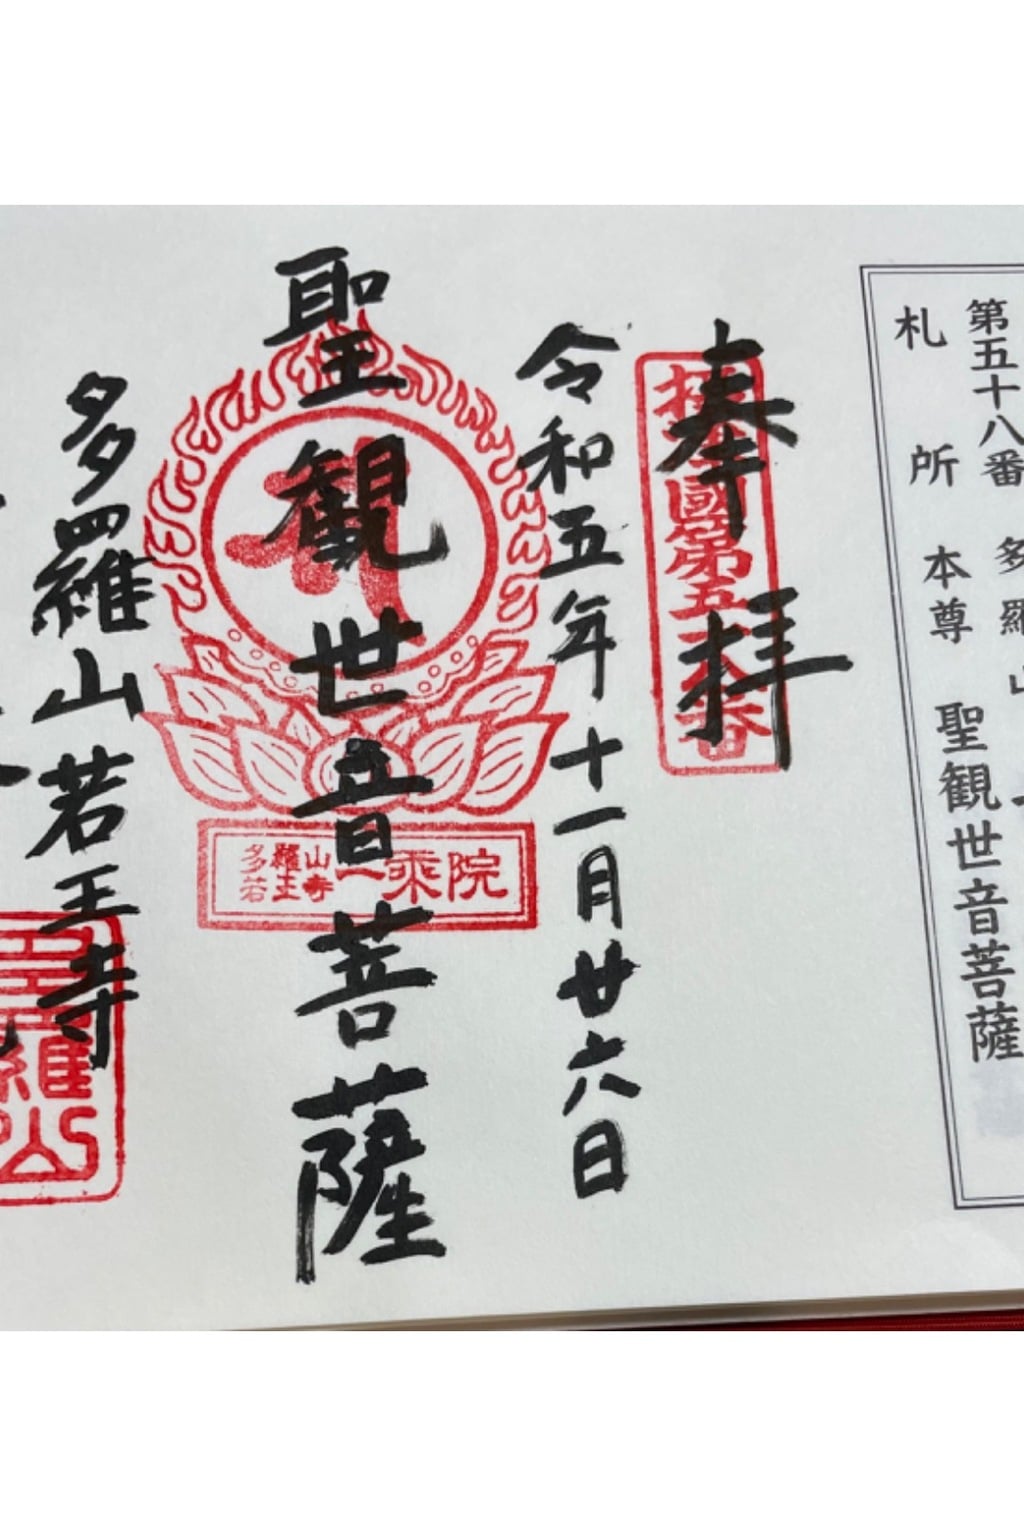 第五十八番 多羅山
札所本尊 聖観世音菩薩
奉拝
令和五年十一月廿六日
聖観世音菩薩
多羅山若王寺
一乘院
多羅山
若王寺